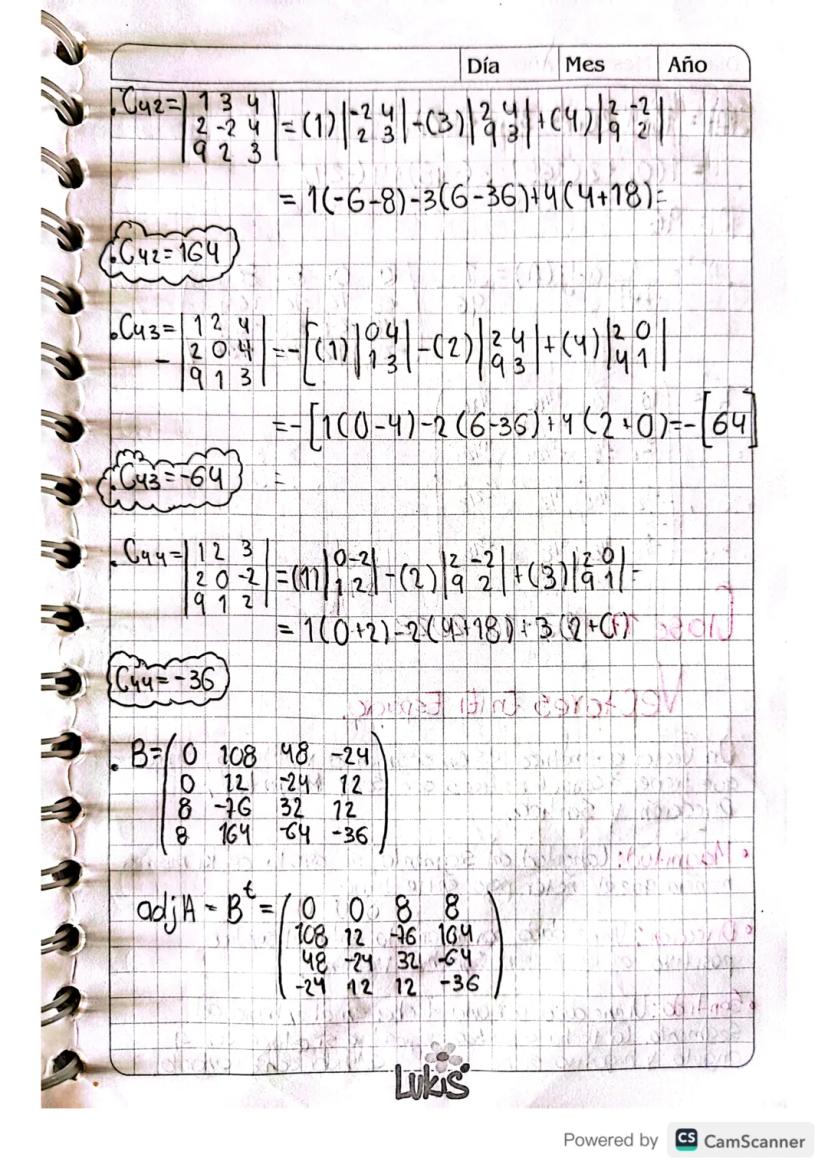 Día Mes Año
. C42 = | 1 3 4 | = (1) | -2 4 | - (3) | 2 4 | + (4) | 2 -2 |
| 2 -2 4 | | 2 3 | | 9 3 | | 9 2 |
| 9 2 3 |
= 1(-6-8) -3(6-36) +4(4+18) =
. C42 = 164
. C43 = | 1 2 4 | = - [ (1) | 0 4 | - (2) | 2 4 | + (4) | 2 0 |
- | 2 0 4 | | 1 3 | | 9 3 | | 4 1 |
| 9 1 3 |
= - [ 1(0-4) -2(6-36) +4(2+0) = - [ 64 ]
. C43 = -64 =
. C44 = | 1 2 3 | = (1) | 0 -2 | - (2) | 2 -2 | + (3) | 2 0 | =
| 2 0 -2 | | 1 2 | | 9 2 | | 9 1 |
| 9 1 2 |
= 1(0+2) -2(4+18) + 3(2+0)
C44 = -36
. B = ( 0 108 48 -24 )
0 12 -24 12
8 -76 32 12
8 164 -64 -36
adj A = B^t = ( 0 0 8 8 )
108 12 -76 164
48 -24 32 -64
-24 12 12 -36
LUKIS
Powered by CS CamScanner